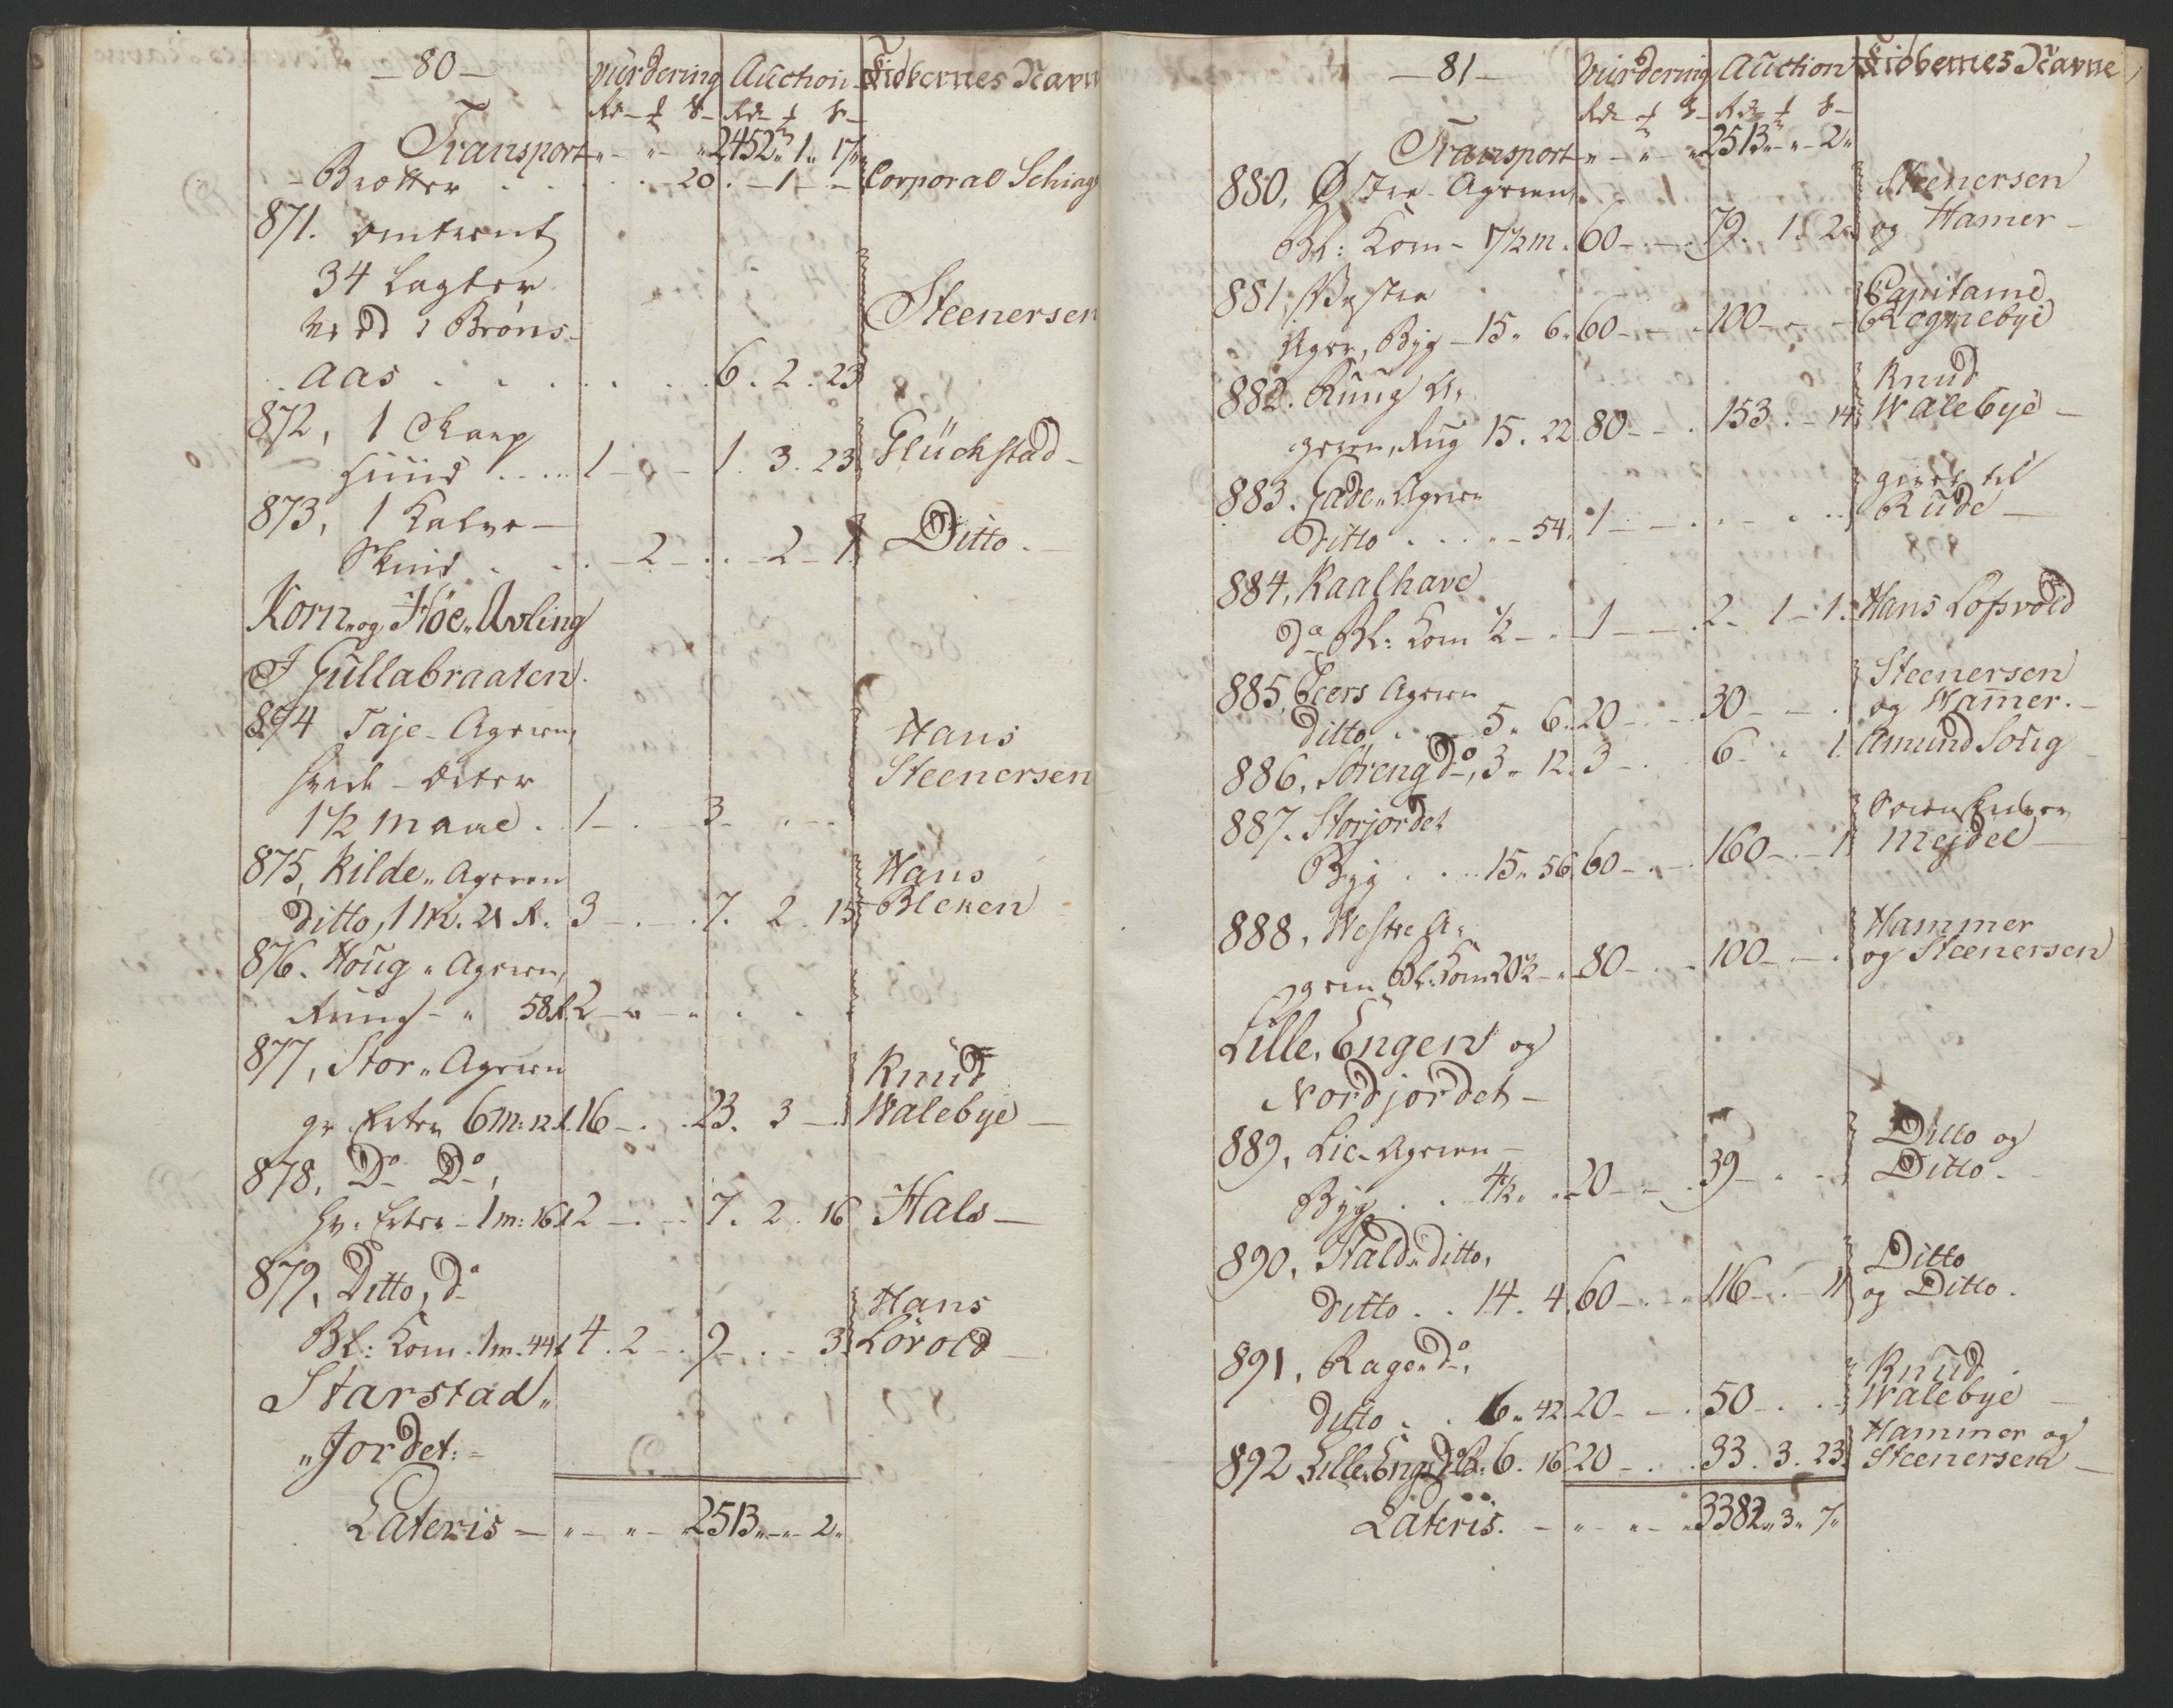 - 80 -
Vurdering Auction Kiøbernes Navn
Rd - ƒ ß - Rd - ƒ ß -
Transport " - " - " 2452 " 1 " 17 "
- Brætter . . . . . 20 . - 1 - - Corporal Schiag
871. omtrent
34 Lagter
Ved i Brøns-
Aas . . . . . . 6 . 2 . 23 Steenersen
872, 1 Skaap
Huud . . . . 1 - " - 1 . 3 . 23 Glückstad -
873, 1 Kalve -
Skind . . . - 2 - . . - 2 - 1. Ditto . -
Korn " og Høe " Avling
I Gullabraaten .
874 Taje - Ageren,
hvide - Erter Hans
1 1/2 Maae . 1 - . - 3 - . - - Steenersen
875, Kilde " Ageren Hans
Ditto, 1 M. 21 R. 3 - . - 7. 2 . 15 Bleken
876. Houg " Ageren,
Ruug - " 58 R. 2 - " - " . .
877, Stor " Ageren Knud
gr. Erter 6 m: 12 R. 16 - . . 23. 3 - . Walebye -
878, Do Do,
hv. Erter - 1 m: 16 R 2 - . - 7. 2 . 16 Hals -
879, Ditto, do Hans
Bl: Korn . 1 m. 44 R 4 . 2 - . 9 - . - 3. Lørold -
Starstad "
" Jordet: -
Lateris - " - " - " 2513 " - " - 2 "
- 81 -
Vurdering Auction Kiøbernes Navne
Rd - ƒ ß - Rd - ƒ ß -
Transport " - " - " 2513 " - " - 2 "
880, Østre - Ageren, Steenersen
Bl: Korn - 17 1/2 m . 60 - . - 79. 1. 2 og Hamer -
881, Westre Capitaine
Ager, Byg - 15 " 6 . 60 - . - 100 - . - Rognebye
882. Ruug A- Knud
geren, Rug 15 . 22 . 80 - - . 153 . - 14 Walebye -
883. Gade " Ageren givet til
Ditto . . . . - 54. 1 - - . . - . . Rude -
884, Kaalhave
do Bl: Korn 1/2 - . 1 - - . 2 - 1 - 1. Hans Lofsvold
885, Leers Ageren Steenersen
Ditto . . . 5 " 6 . 20 - . - 30 - - . og Hamer . -
886, Søreng do, 3 " 12 . 3 - . 6 - " 1. Amund Sørig
887. Storjordet
Byg . . . 15 " 56 . 60 - . - 160 - . - 1. Mejdel -
888, Westre A- Hammer
geren Bl: Korn 20 1/2 - . 80 - . - 100 - . - . og Steenersen
Lille " Engen og
Nordjordet -
889, Lie - Ageren - Ditto og
Byg . . 4 1/2 " . 20 - - . 39 - " - . Ditto . -
890, Stald " ditto, Ditto
Ditto . . 14 . 4 . 60 - . - 116 - . - 11 og Ditto .
891, Rage " do, Knud
Ditto . . 6 " 42 . 20 - . - . 50 - . . - Walebye -
Hammer og
892 Lille Engs do: 6 . 16 . 20 - . . 33 . 3 . 23. Steenersen -
Lateris. - " - " - " 3382 " 3 " 7 "